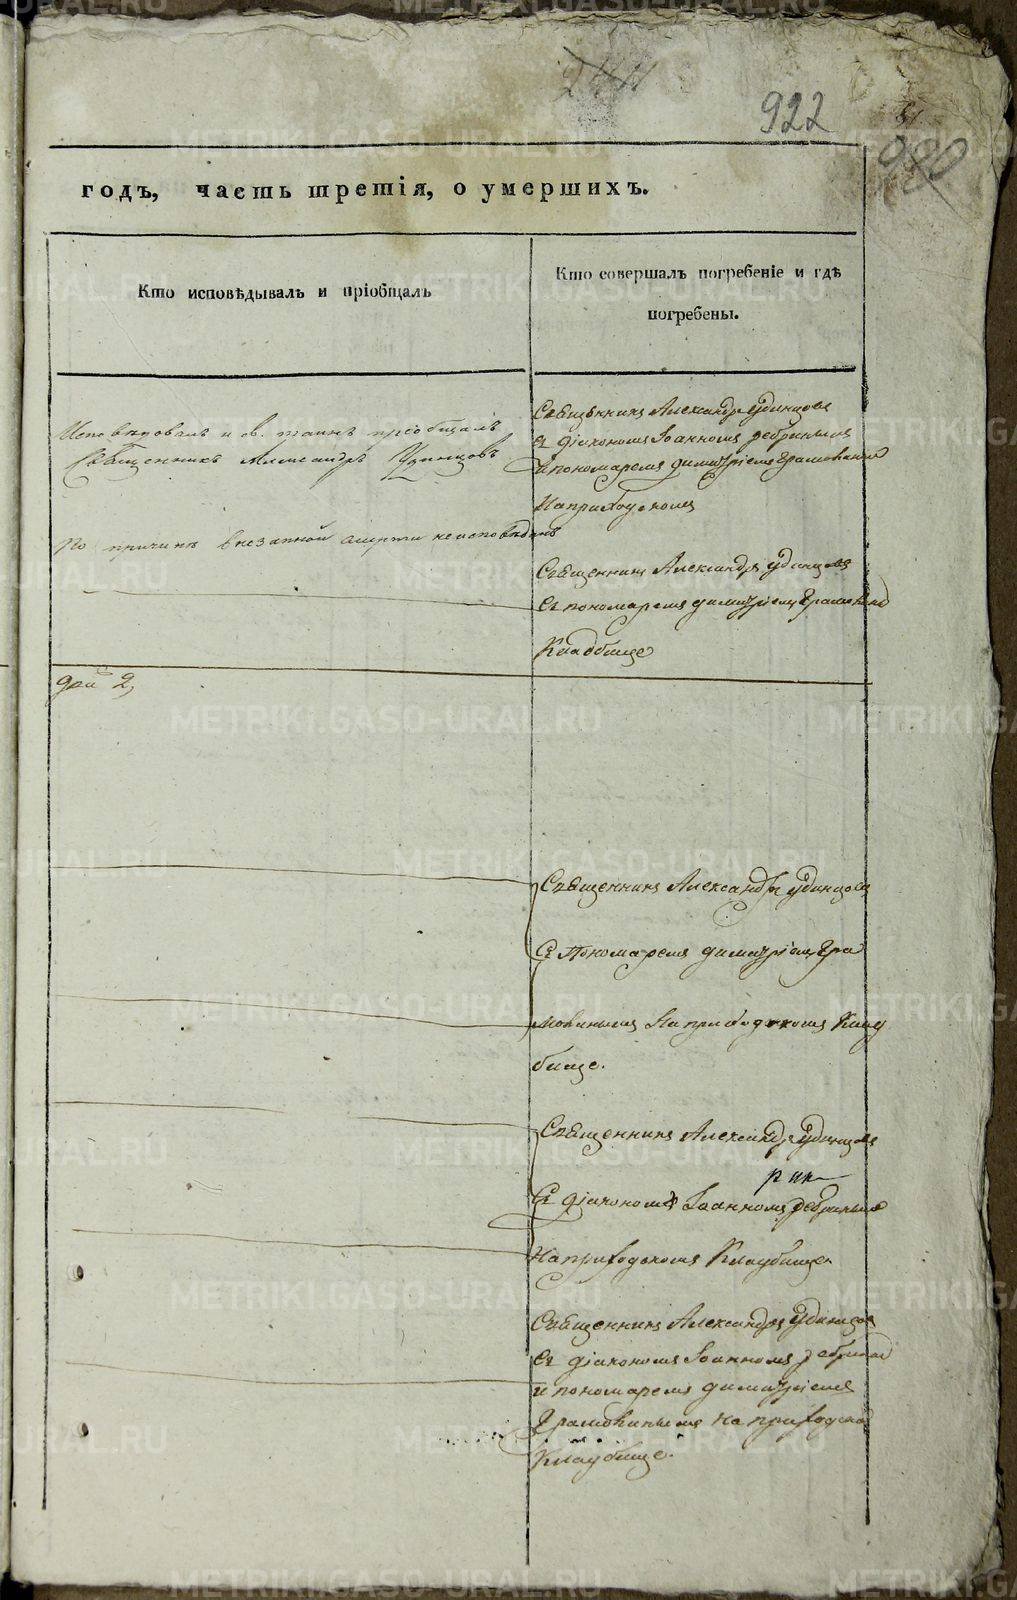 922
годъ, часть третія, о умершихъ.
Кто исповѣдывалъ и пріобщалъ
Кто совершалъ погребеніе и гдѣ
погребены.
Исповѣдовалъ и св. таинъ пріобщалъ
Священникъ Александръ Удинцовъ
Священникъ Александръ Удинцовъ
съ діакономъ Іоанномъ Ребринымъ
и пономаремъ Димитріемъ
На приходскомъ
По причинѣ внезапной смерти неисповѣданъ
Священникъ Александръ Удинцовъ
съ пономаремъ Димитріемъ
Кладбище
2
Священникъ Александръ Удинцовъ
съ Пономаремъ Димитріемъ Гра
мовинымъ На приходскомъ Клад
бище.
Священникъ Александръ Удинцовъ
съ діакономъ Іоанномъ Ребринымъ
На приходскомъ Кладбище
Священникъ Александръ Удинцовъ
съ діакономъ Іоанномъ
и пономаремъ Димитріемъ
Грамовинымъ на приходском
Кладбище.
METRIKI.GASO-URAL.RU